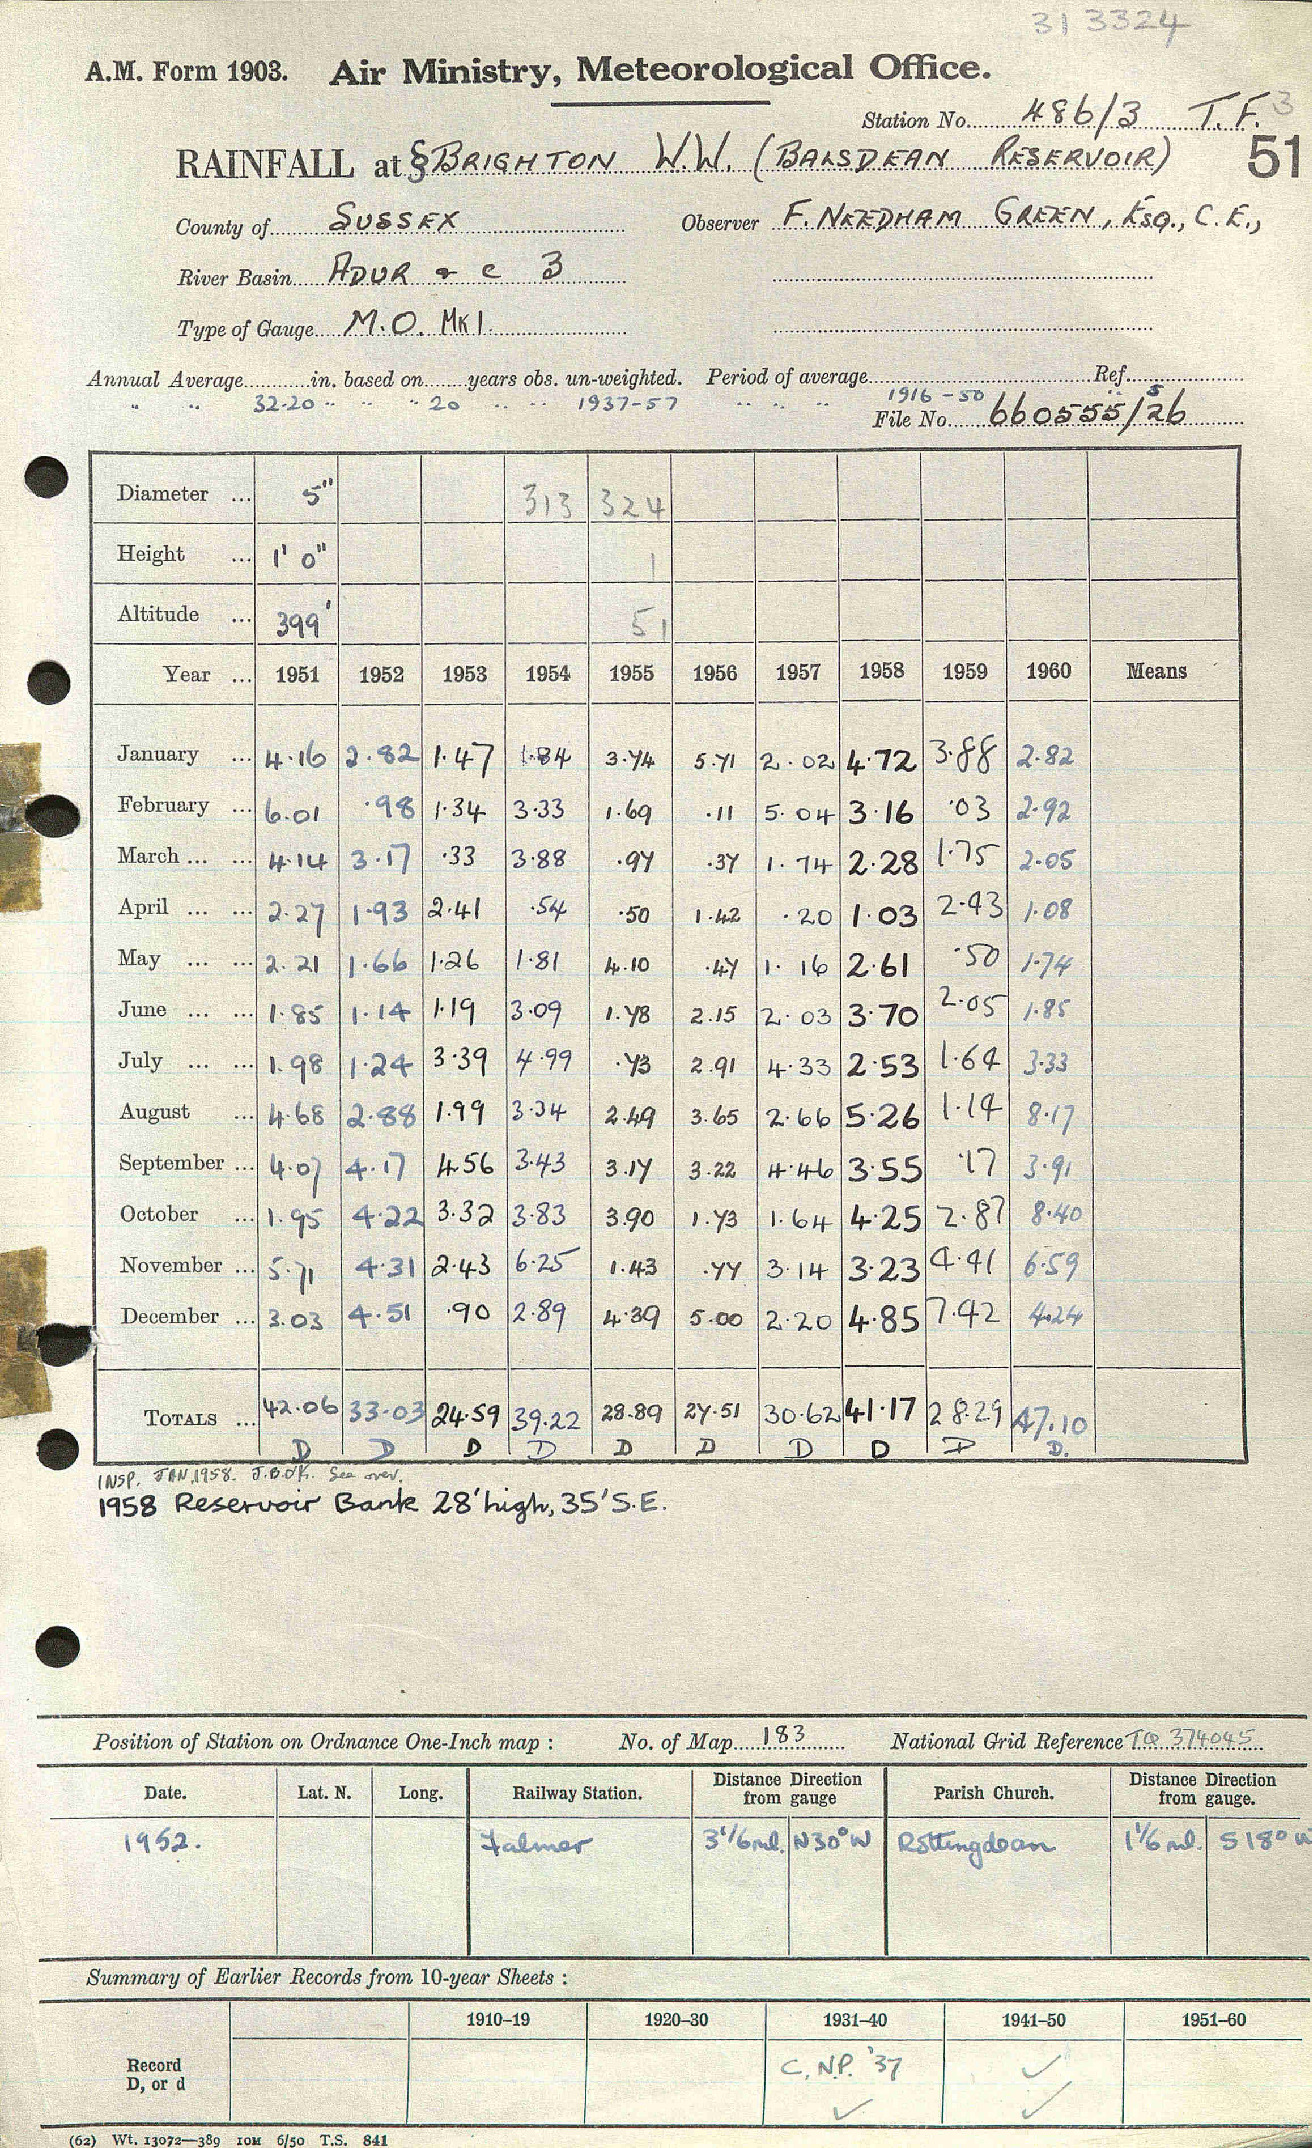 31 3324
A.M. Form 1903. Air Ministry, Meteorological Office.
Station No. 486/3 T.F. 3
RAINFALL at § BRIGHTON W.W. (BALSDEAN RESERVOIR) 51
County of SUSSEX Observer F. NEEDHAM GREEN, Esq., C.E.,
River Basin ADUR & c 3
Type of Gauge M.O. Mk 1
Annual Average in. based on years obs. un-weighted. Period of average Ref.
" " 32.20 " " " 20 " " " 1937-57 " " " 1916-50 " 5
File No. 660555/26
Diameter ... 5" 313 324
Height ... 1' 0" 1
Altitude ... 399' 51
Year ... 1951 1952 1953 1954 1955 1956 1957 1958 1959 1960 Means
January ... 4.16 2.82 1.47 1.84 3.74 5.71 2.02 4.72 3.88 2.82
February ... 6.01 .98 1.34 3.33 1.69 .11 5.04 3.16 .03 2.92
March ... ... 4.14 3.17 .33 3.88 .97 .37 1.74 2.28 1.75 2.05
April ... ... 2.27 1.93 2.41 .54 .50 1.42 .20 1.03 2.43 1.08
May ... ... 2.21 1.66 1.26 1.81 4.10 .47 1.16 2.61 .50 1.74
June ... ... 1.85 1.14 1.19 3.09 1.78 2.15 2.03 3.70 2.05 1.85
July ... ... 1.98 1.24 3.39 4.99 .73 2.91 4.33 2.53 1.64 3.33
August ... 4.68 2.88 1.99 3.34 2.49 3.65 2.66 5.26 1.14 8.17
September ... 4.07 4.17 4.56 3.43 3.17 3.22 4.46 3.55 .17 3.91
October ... 1.95 4.22 3.32 3.83 3.90 1.73 1.64 4.25 2.87 8.40
November ... 5.71 4.31 2.43 6.25 1.43 .77 3.14 3.23 4.41 6.59
December ... 3.03 4.51 .90 2.89 4.39 5.00 2.20 4.85 7.42 4.24
TOTALS ... 42.06 33.03 24.59 39.22 28.89 27.51 30.62 41.17 28.29 47.10
D D D D D D D D D D.
INSP. JAN, 1958. J.B. OK. See over.
1958 Reservoir Bank 28' high, 35' S.E.
Position of Station on Ordnance One-Inch map : No. of Map 183 National Grid Reference TQ 374045
Date. Lat. N. Long. Railway Station. Distance Direction from gauge Parish Church. Distance Direction from gauge.
1952. Falmer 3 1/6 ml. N30°W Rottingdean 1 1/6 ml. S18°W
Summary of Earlier Records from 10-year Sheets :
1910–19 1920–30 1931–40 1941–50 1951–60
Record D, or d C.N.P. '37 ✓
✓ ✓
(62) Wt. 13072—389 10M 6/50 T.S. 841